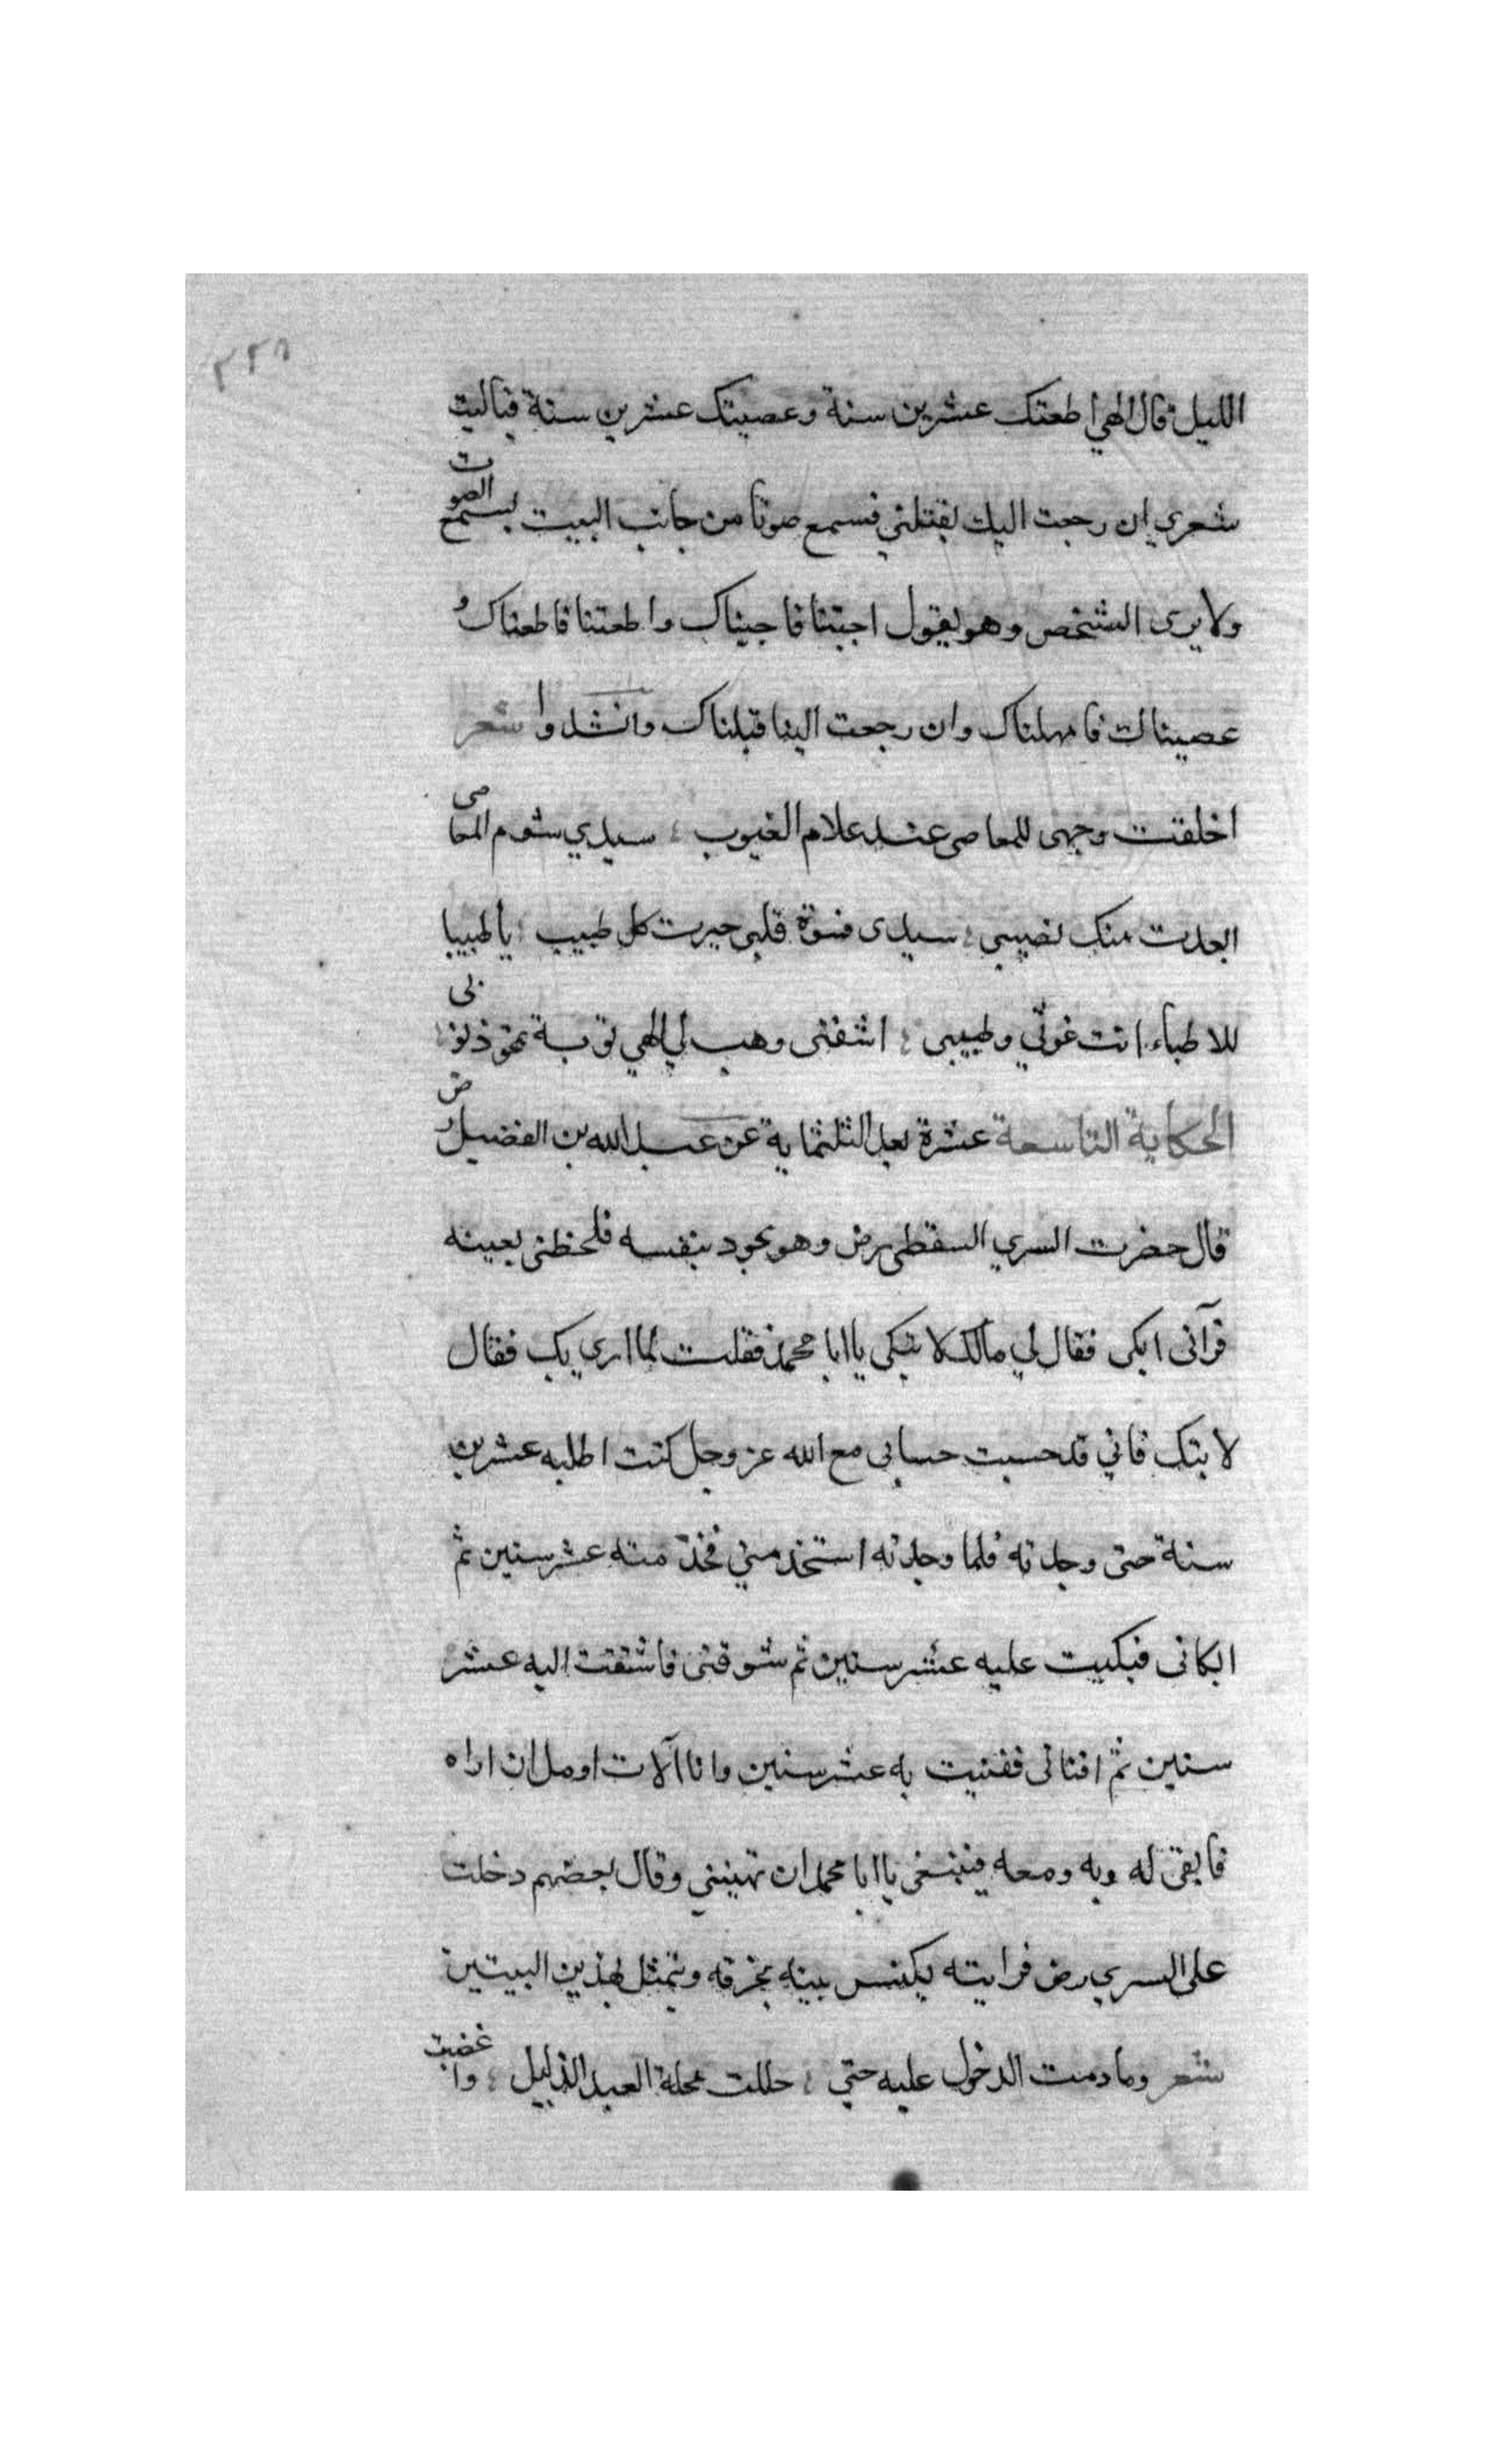 ٢٢٨
الليل قال الهي اطعتك عشرين سنة وعصيتك عشرين سنة فياليت
شعري ان رجعت اليك يقبلني فسمع صوتا من جانب البيت يسمع الصوت
ولا يرى الشخص وهو يقول اجبتنا فاجبناك واطعتنا فاطعناك و
عصيناك فامهلناك وان رجعت الينا قبلناك وانشدوا شعر
اخلقت وجهى للمعاصى عند علام الغيوب ؛ سيدي شوم المعاصى
ابعدت منك نصيبى ؛ سيدى قسوة قلبى حيرت كل طبيب ؛ يا طبيبا
للاطباء انت غوثي وطبيبى ؛ اشفنى وهب لي الهي توبة تمحو ذنوبى
الحكاية التاسعة عشرة بعد الثلثماية عن عبد الله بن الفضيل رض
قال حضرت السري السقطى رض وهو يجود بنفسه فلحظنى بعينه
فرآنى ابكى فقال لي مالك لا تبكى يا ابا محمد فقلت لما ارى بك فقال
لا تبك فاني قد حسبت حسابى مع الله عز وجل كنت اطلبه عشرين
سنة حتى وجدته فلما وجدته استخدمني فخدمته عشر سنين ثم
ابكانى فبكيت عليه عشر سنين ثم شوقنى فاشتقت اليه عشر
سنين ثم افنانى ففنيت به عشر سنين وانا الآت اومل ان اراه
فابقى له وبه ومعه فينبغى يا ابا محمد ان تهنينى وقال بعضهم دخلت
على السري رض فرايته يكنس بيته بخرقه ويتمثل بهذين البيتين
شعر وما دمت الدخول عليه حتي ؛ حللت محلة العبد الذليل ؛ واغضيت